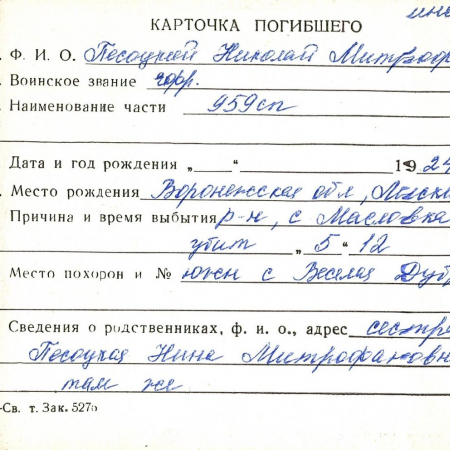 КАРТОЧКА ПОГИБШЕГО
Ф. И. О. Песоцкий Николай Митроф
Воинское звание ефр.
Наименование части 959 сп
Дата и год рождения „ “ 1924
Место рождения Воронежская обл, Лиски
Причина и время выбытия р-н, с Масловка
убит „ 5 “ 12
Место похорон и № южн с Веселая Дубр
Сведения о родственниках, ф. и. о., адрес сестра
Песоцкая Нина Митрофановн
там же
-Св. т. Зак. 527